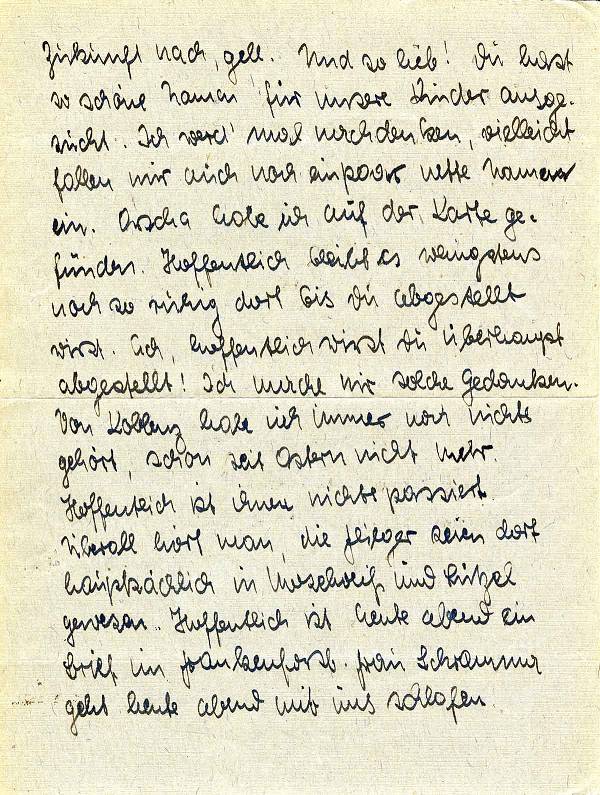 Zukunft nach, gell. Und so lieb! Du hast
so schöne Namen für unsere Kinder ausge-
sucht. Ich werd' mal nachdenken, vielleicht
fallen mir auch noch ein paar nette Namen
ein. Orscha habe ich auf der Karte ge-
funden. Hoffentlich bleibt es wenigstens
noch so ruhig dort bis Du abgestellt
wirst. Ach, hoffentlich wirst Du überhaupt
abgestellt! Ich mache mir solche Gedanken.
Von Koblenz habe ich immer noch nichts
gehört, schon seit Ostern nicht mehr.
Hoffentlich ist ihnen nichts passiert.
Überall hört man, die Flieger seien dort
hauptsächlich in Moselweiß und Lützel
gewesen. Hoffentlich ist heute abend ein
Brief im Frankenforst. Frau Schramma
geht heute abend mit uns schlafen.